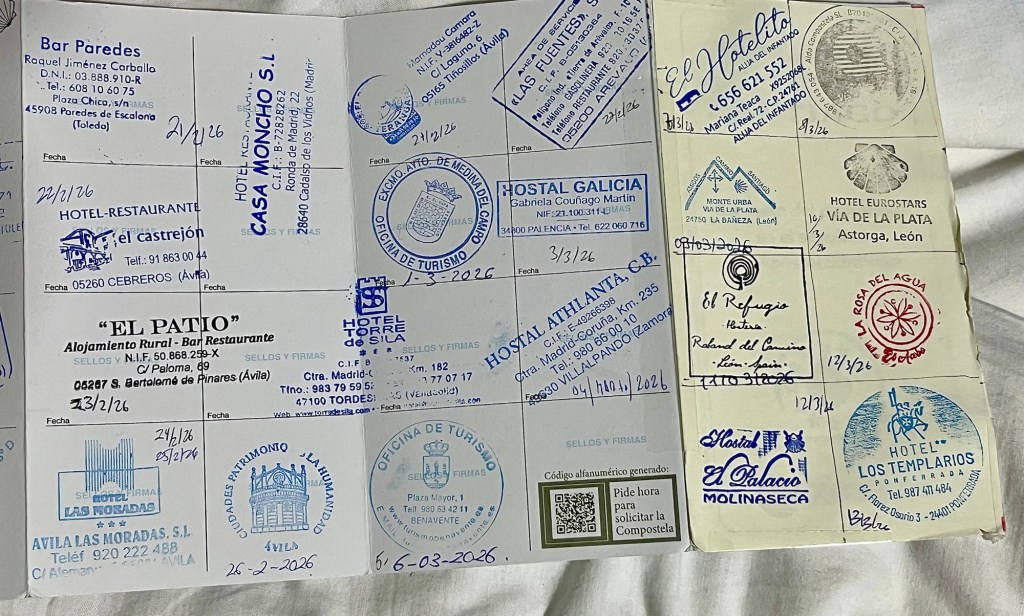 Bar Paredes
Raquel Jiménez Carballo
D.N.I.: 03.888.910-R
Tel.: 608 10 60 75
Plaza Chica, s/n
45908 Paredes de Escalona
(Toledo)
21/2/26
Fecha
HOTEL RESTAURANTE
CASA MONCHO S.L
C.I.F.: B-72828262
Ronda de Madrid, 22
28640 Cadalso de los Vidrios (Madrid)
SELLOS Y FIRMAS
Fecha
22/2/26
HOTEL-RESTAURANTE
el castrejón
Telf.: 91 863 00 44
05260 CEBREROS (Ávila)
Fecha
"EL PATIO"
Alojamiento Rural - Bar Restaurante
N.I.F. 50.868.259-X
C/ Paloma, 69
05267 S. Bartolomé de Pinares (Ávila)
23/2/26
Fecha
HOTEL
TORRE
de SILA
Ctra. Madrid-
Km. 182
Tfno.: 983 79 59 52
77 07 17
47100 TORDES
Web: www.torredesila.com
SELLOS Y FIRMAS
Fecha
24/2/26
25/2/26
HOTEL
LAS MORADAS
AVILA LAS MORADAS, S.L.
Teléf 920 222 488
CIUDADES PATRIMONIO DE LA HUMANIDAD
ÁVILA
26-2-2026
Mamadou Camara
N.I.F. Y-3816482-Z
C/ Laguna, 6
05165 Tiñosillos (Ávila)
27/2/26
Fecha
AREA DE SERVICIO
«LAS FUENTES»
05200 AREVALO
Fecha
EXCMO. AYTO. DE MEDINA DEL CAMPO
OFICINA DE TURISMO
1-3-2026
Fecha
HOSTAL GALICIA
Gabriela Couñago Martin
NIF: 21.100.311-L
34800 PALENCIA - Tel. 622 060 716
3/3/26
Fecha
HOSTAL ATHLANTA, C.B.
C.I.F.: E-49266398
Ctra. Madrid-Coruña, Km. 235
Tel.: 980 66 00 10
49630 VILLALPANDO (Zamora)
04/marzo/2026
Fecha
OFICINA DE TURISMO
Plaza Mayor, 1
Telf. 980 63 42 11
BENAVENTE
www.turismobenavente.es
6-03-2026
SELLOS Y FIRMAS
Código alfanumérico generado:
Pide hora
para
solicitar la
Compostela
El Hotelito
ALIJA DEL INFANTADO
656 621 552
Mariana Teaca
C/. Real, 72. C.P. 24761
ALIJA DEL INFANTADO
8/3/26
AMIGOS CAMINO SANTIAGO
MONTE URBA
VIA DE LA PLATA
24750 LA BAÑEZA (León)
09/03/2026
HOTEL EUROSTARS
VÍA DE LA PLATA
Astorga, León
10/3/26
El Refugio
Hostería
Roland del Camino
León-Spain
LA ROSA DEL AGUA
12/3/26
12/3/26
Hostal
El Palacio
MOLINASECA
HOTEL
LOS TEMPLARIOS
PONFERRADA
Tel. 987 411 484
C/. Florez Osorio 3 - 24401 PONFERRADA
13/3/26